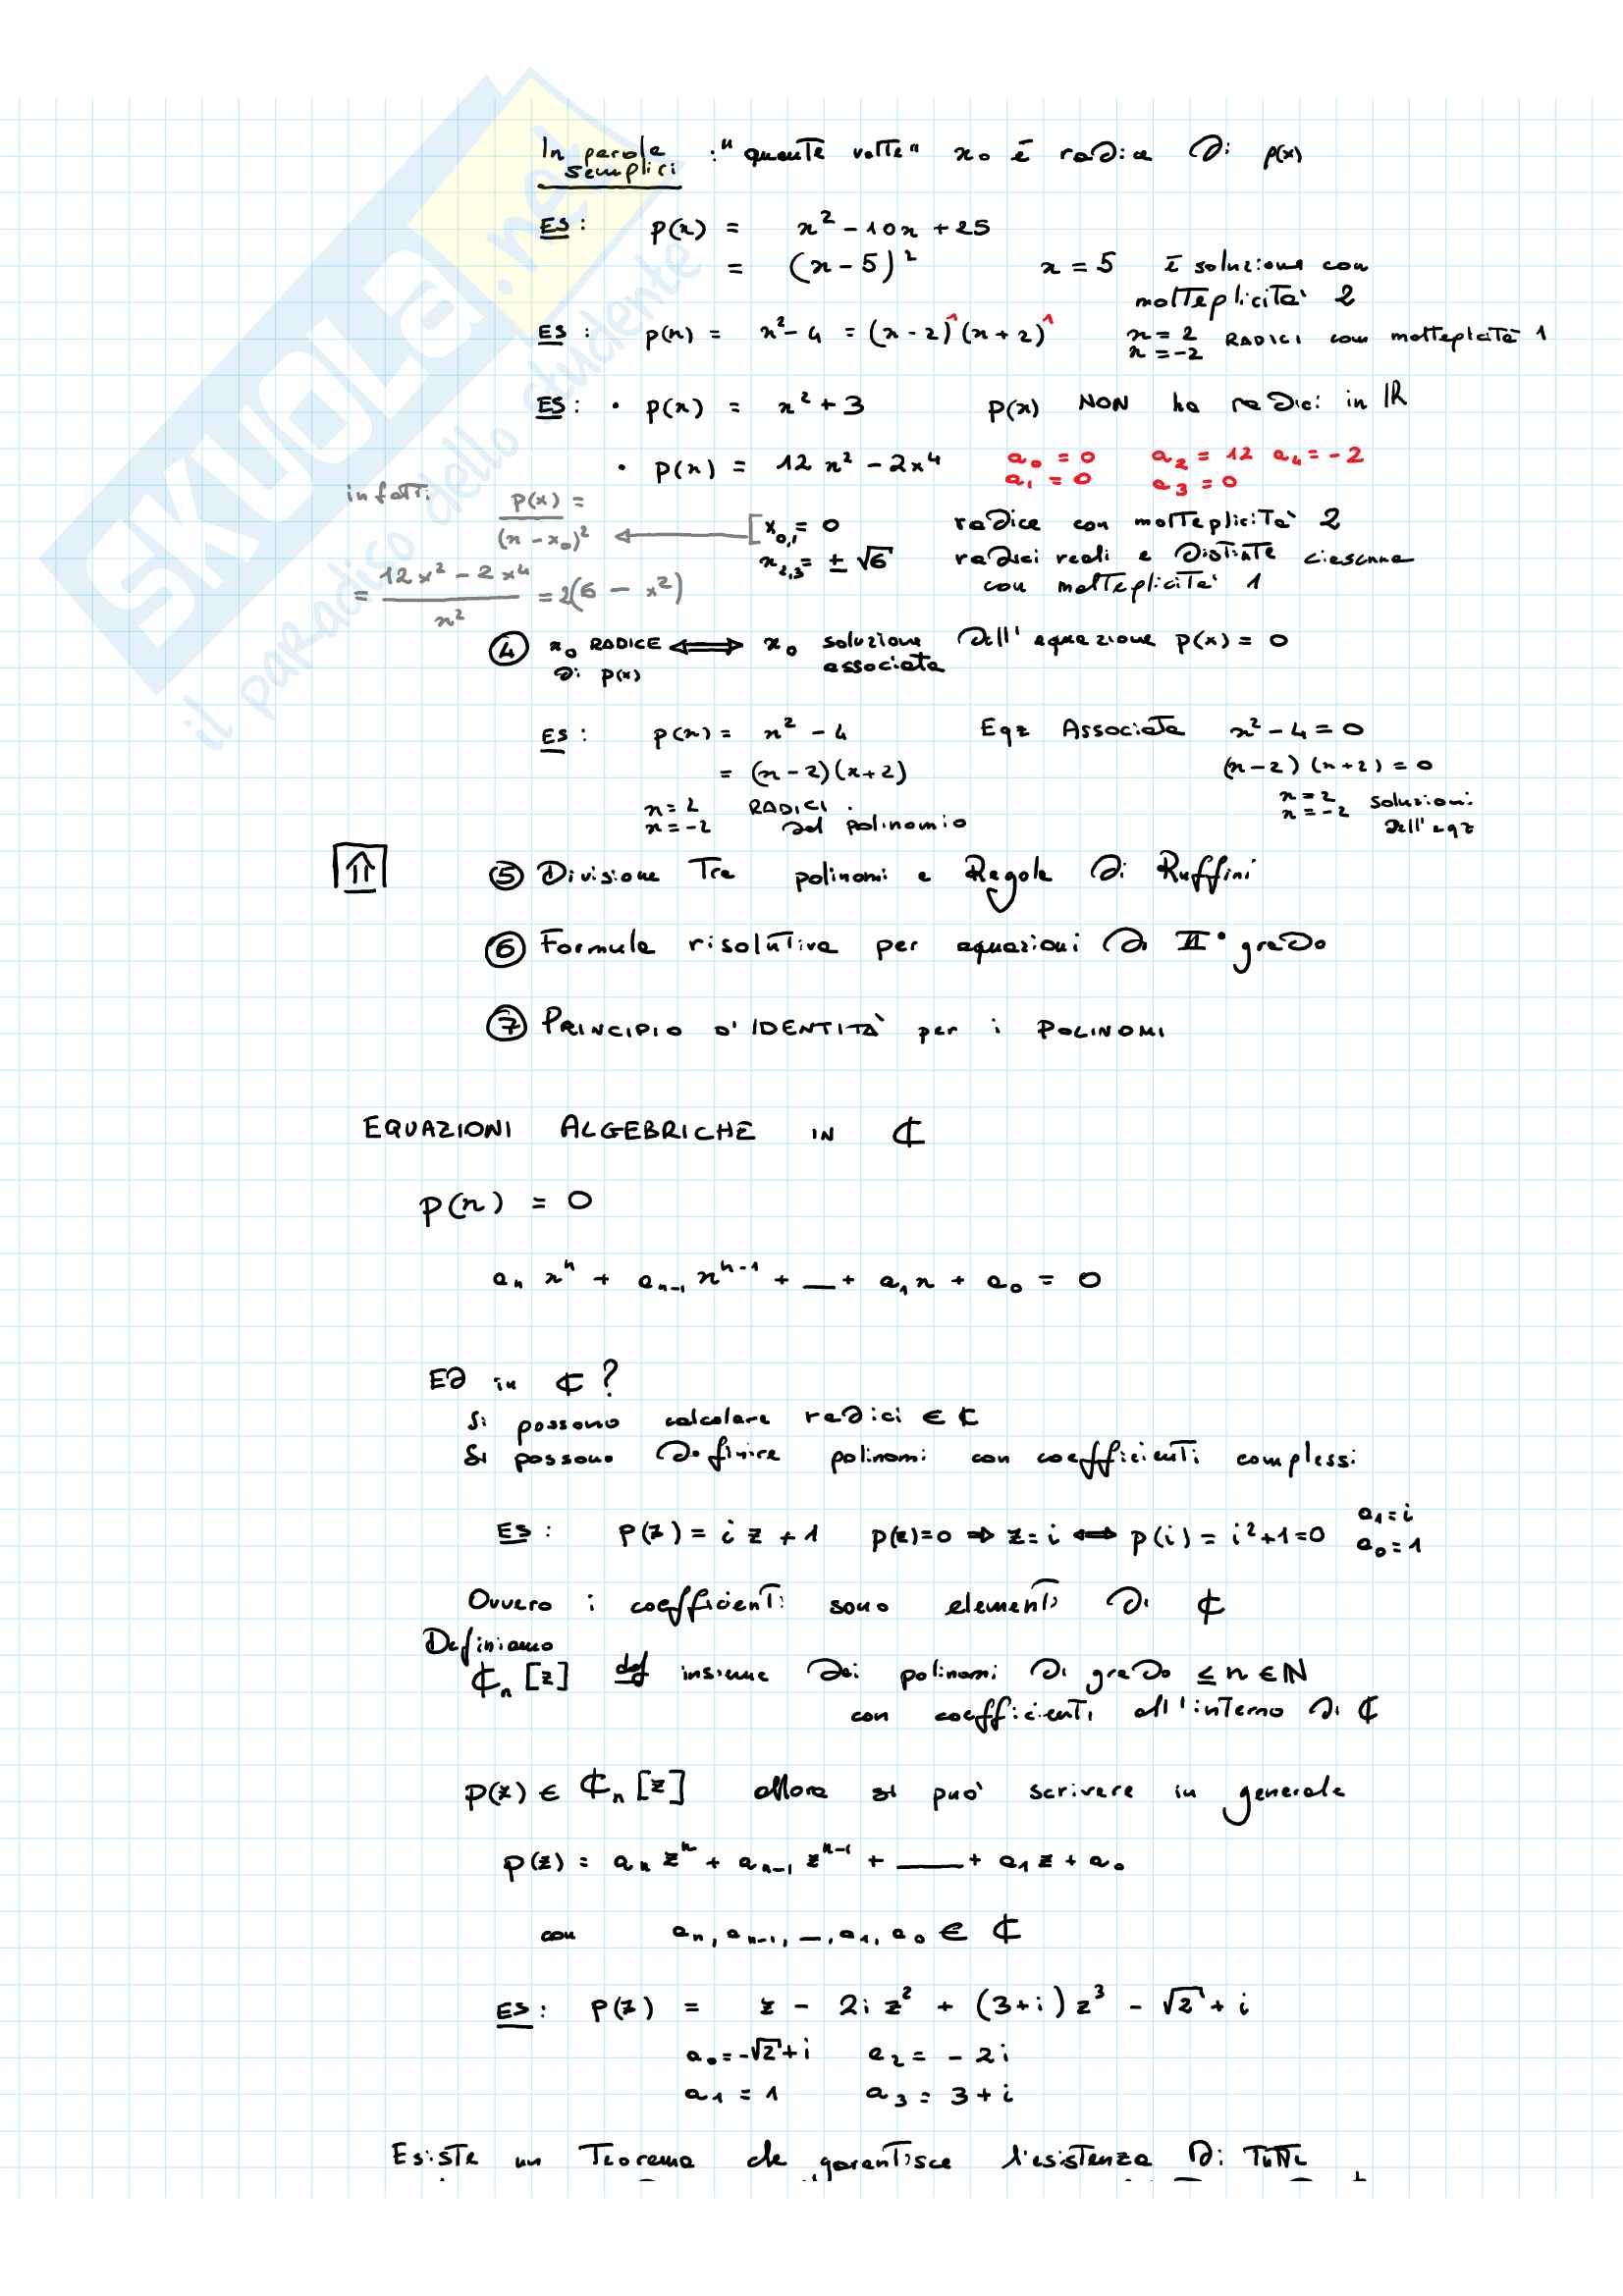 In parole semplici : "quante volte" x₀ è radice di p(x)
ES: p(x) = x² - 10x + 25
= (x - 5)² x = 5 è soluzione con
molteplicità 2
ES: p(x) = x² - 4 = (x - 2)¹ (x + 2)¹ x = 2 x = -2 RADICI con molteplicità 1
ES: • p(x) = x² + 3 p(x) NON ha radici in ℝ
• p(x) = 12x² - 2x⁴ a₀ = 0 a₂ = 12 a₄ = -2
a₁ = 0 a₃ = 0
infatti p(x) / (x - x₀)² = ← [x₀,₁ = 0 radice con molteplicità 2
x₂,₃ = ± √6 radici reali e distinte ciascuna
con molteplicità 1
= 12x² - 2x⁴ / x² = 2(6 - x²)
④ x₀ RADICE di p(x) ⟺ x₀ soluzione dell'equazione p(x) = 0
associata
ES: p(x) = x² - 4 Eqz Associata x² - 4 = 0
= (x - 2)(x + 2) (x - 2)(x + 2) = 0
x = 2 x = -2 RADICI del polinomio x = 2 x = -2 soluzioni dell'eqz
⇑ ⑤ Divisione Tra polinomi e Regola di Ruffini
⑥ Formula risolutiva per equazioni di II° grado
⑦ PRINCIPIO D'IDENTITÀ per i POLINOMI
EQUAZIONI ALGEBRICHE IN ℂ
p(x) = 0
aₙ xⁿ + aₙ₋₁ xⁿ⁻¹ + __ + a₁x + a₀ = 0
Ed in ℂ?
Si possono calcolare radici ∈ ℂ
Si possono definire polinomi con coefficienti complessi
ES: p(z) = iz + 1 p(z)=0 ⇒ z=i ⟺ p(i) = i²+1=0 a₁=i a₀=1
Ovvero i coefficienti sono elementi di ℂ
Definiamo
ℂₙ[z] def insieme dei polinomi di grado ≤ n ∈ ℕ
con coefficienti all'interno di ℂ
p(z) ∈ ℂₙ[z] allora si può scrivere in generale
p(z) = aₙ zⁿ + aₙ₋₁ zⁿ⁻¹ + ___ + a₁z + a₀
con aₙ, aₙ₋₁, _, a₁, a₀ ∈ ℂ
ES: p(z) = z - 2i z² + (3+i) z³ - √2 + i
a₀ = -√2 + i a₂ = -2i
a₁ = 1 a₃ = 3 + i
Esiste un Teorema che garantisce l'esistenza di TUTTE
SKUOLA.net
il paradiso dello studente